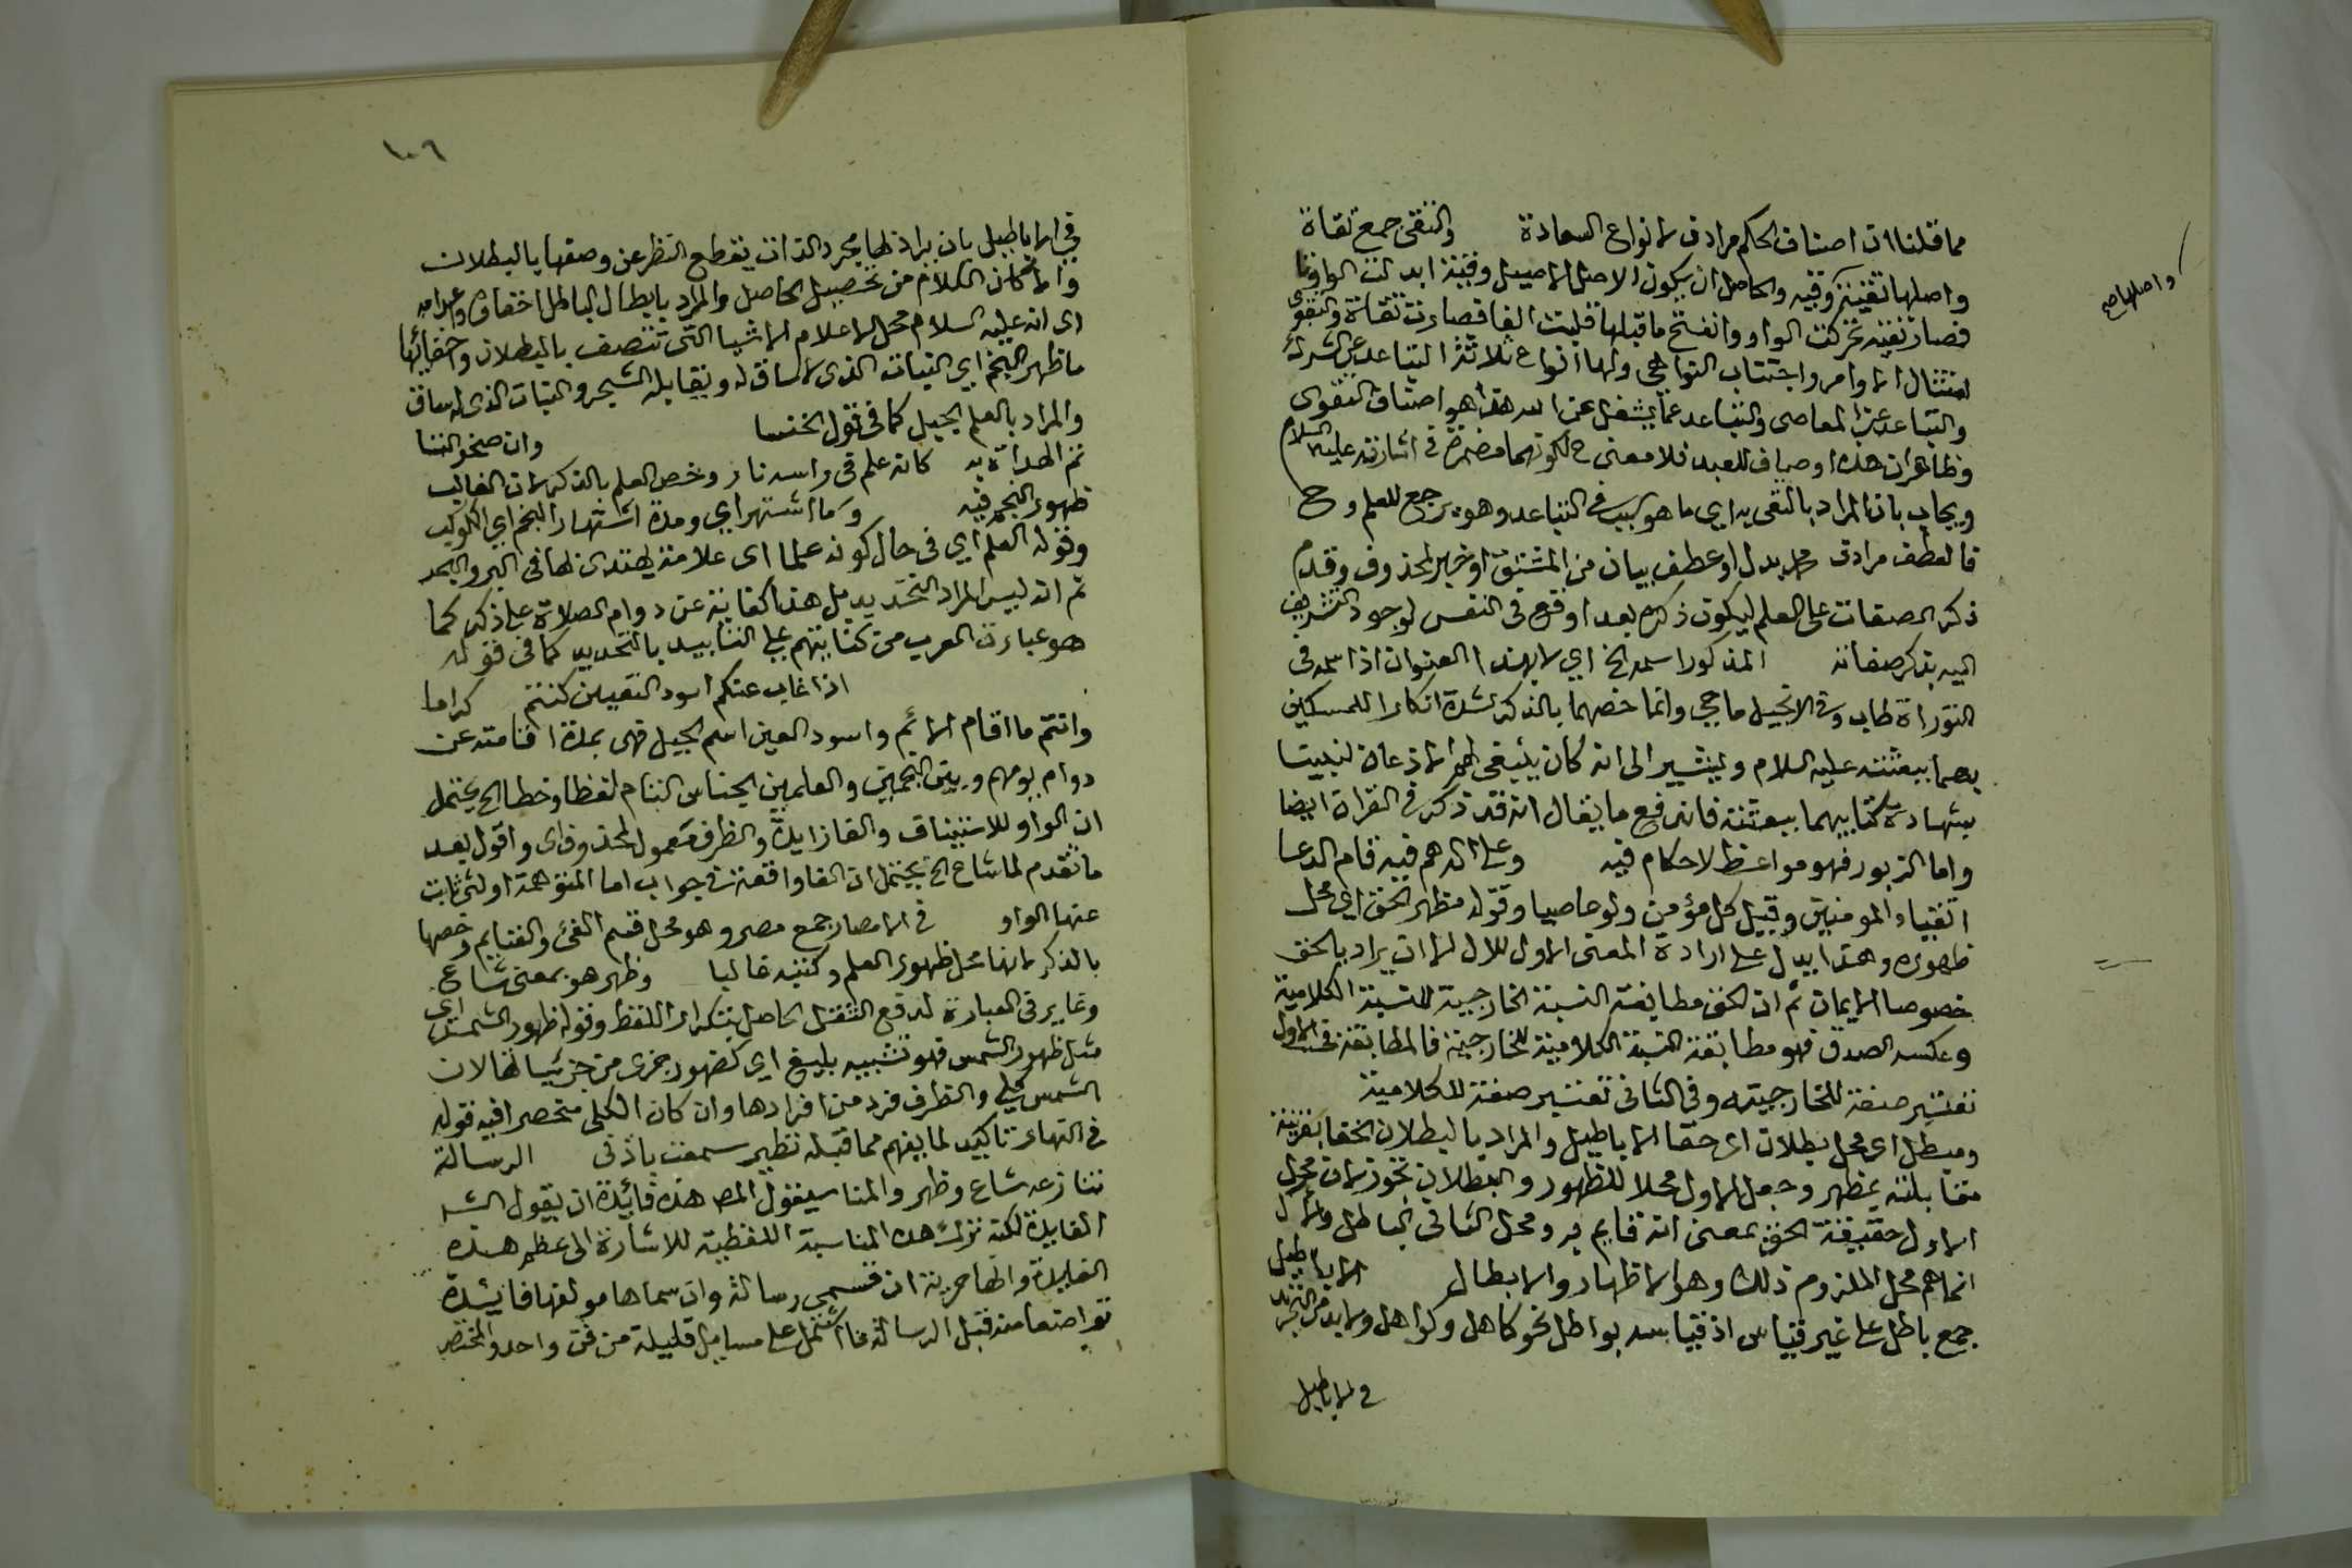 مما قلنا ان اصناف الحكم مرادف لانواع السعادة والتقى جمع تقاة
واصلها تقية وقيه والحاصل ان يكون الاصل الاصيل وقية ابدلت الواو تا
فصار تقية تحركت الواو وانفتح ما قبلها قلبت الفا فصارت تقاة والتقوى
امتثال الاوامر واجتناب النواهي ولها انواع ثلاثة التباعد عن الشرك
والتباعد عن المعاصي والتباعد عما يشغل عن الله هذا هو اصناف التقوى
وظاهر ان هذه اوصاف للعبد فلا معنى ح لكونهما في اشارته عليه السلام
ويجاب بان المراد بالتقى به اي ما هو سبب في التباعد وهو يرجع للعلم وح
فالعطف مرادف محمد بدل او عطف بيان من المشتق او خبر لمحذوف وقدم
ذكر الصفات على العلم ليكون ذكره بعد اوقع في النفس لوجود التشريف
اليه بذكر صفاته المذكور اسمه الخ اي لا بهذا العنوان اذ اسمه في
التوراة طاب وفي الانجيل ماحي وانما خصهما بالذكر لشدة انكار المسكين
بهما ببعثته عليه السلام وليشير الى انه كان ينبغي لهم الاذعان لنبينا
بشهادة كتابيهما ببعثته فاندفع ما يقال انه قد ذكر في القران ايضا
واما الزبور فهو مواعظ لاحكام فيه وعلى اله هم فيه قام الدعا
اتقياء المومنين وقيل كل مؤمن ولو عاصيا وقوله مظهر الحق اي محل
ظهوره وهذا يدل على ارادة المعنى الاول للال الا ان يراد بالحق
خصوصا الايمان ثم ان الحق مطابقة النسبة الخارجية للنسبة الكلامية
وعكسه الصدق فهو مطابقة النسبة الكلامية للخارجية فالمطابقة في الاول
تعتبر صفة للخارجية وفي الثاني تعتبر صفة للكلامية
ومبطل اي محل بطلان اي حقا الاباطيل والمراد بالبطلان الخفا بقرينة
مقابلته بمظهر وجعل الاول محلا للظهور والبطلان تجوز لان محل
الاول حقيقة الحق بمعنى انه قايم به ومحل الثاني الباطل والال
انما هم محل الملزوم ذلك وهو الاظهار والابطال الاباطيل
جمع باطل على غير قياس اذ قياسه بواطل نحو كاهل وكواهل ولا بد من التجريد
في الاباطيل
واصلها صح
١٠٦
في الاباطيل بان يراد بها مجرد الذات بقطع النظر عن وصفها بالبطلان
والا كان الكلام من تحصيل الحاصل والمراد بابطال الباطل اخفاؤه واعدامه
اي انه عليه السلام محل لاعلام الاشيا التي تتصف بالبطلان واخفائها
ما ظهر النجم اي النبات الذي لا ساق له ويقابله الشجر والنبات الذي له ساق
والمراد بالعلم الجبل كما في قول الخنسا وان صخر النا
تم الهداة به كانه علم في راسه نار وخص العلم بالذكر لان الغالب
ظهور النجم فيه وما اشتهر اي ومدة اشتهار النجم اي الكوكب
وقوله العلم اي في حال كونه علما اي علامة يهتدى بها في البر والبحر
ثم انه ليس المراد التحديد بل هذا كناية عن دوام الصلاة على ذكر كما
هو عبارت العرب من كنايتهم على التابيد بالتحديد كما في قوله
اذا غاب عنكم اسود العين كنتم كراما
وانتم ما اقام الائم واسود العين اسم الجبل فهي بمدة اقامته عن
دوام لومهم وبين النجمين والعلمين الجناس التام لفظا وخطا الخ يحتمل
ان الواو للاستيناف والفا زايدة والظرف معمول لمحذوف اي واقول بعد
ما تقدم لما شاع الخ يحتمل ان الفا واقعة في جواب اما المتوهمة او لشي نابت
عنها الواو في الامصار جمع مصر وهو محل قسم الفئ والغنايم وخصها
بالذكر لانها محل ظهور العلم وكتبه غالبا وظهر هو بمعنى شاع
وغاير في العبارة لدفع الثقل الحاصل بتكرار اللفظ وقوله ظهور الشمس اي
مثل ظهور الشمس فهو تشبيه بليغ اي كظهور جزئ من جزئياتها لان
الشمس كلي والظرف فرد من افرادها وان كان الكلي منحصرا فيه قوله
في النهار تاكيد لما يفهم مما قبله نظير سمعت باذني الرسالة
تنازعه شاع وظهر والمناسب لقول المص هذه فايدة ان يقول الشـ
الفايدة لكنه ترك هذه المناسبة اللفظية للاشارة الى عظم هذه
الفايدة وانها حرية ان تسمى رسالة وان سماها مولفها فايدة
تواضعا منه قيل الرسالة ما اشتمل على مسايل قليلة من فن واحد والمختصر